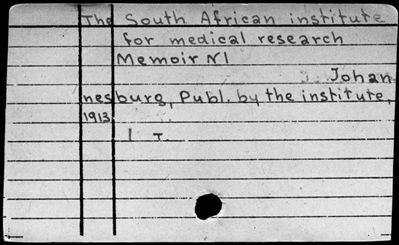 The South African institute
for medical research
Memoir N1
Johan
nesburg, Publ. by the institute,
1913.
1 T.